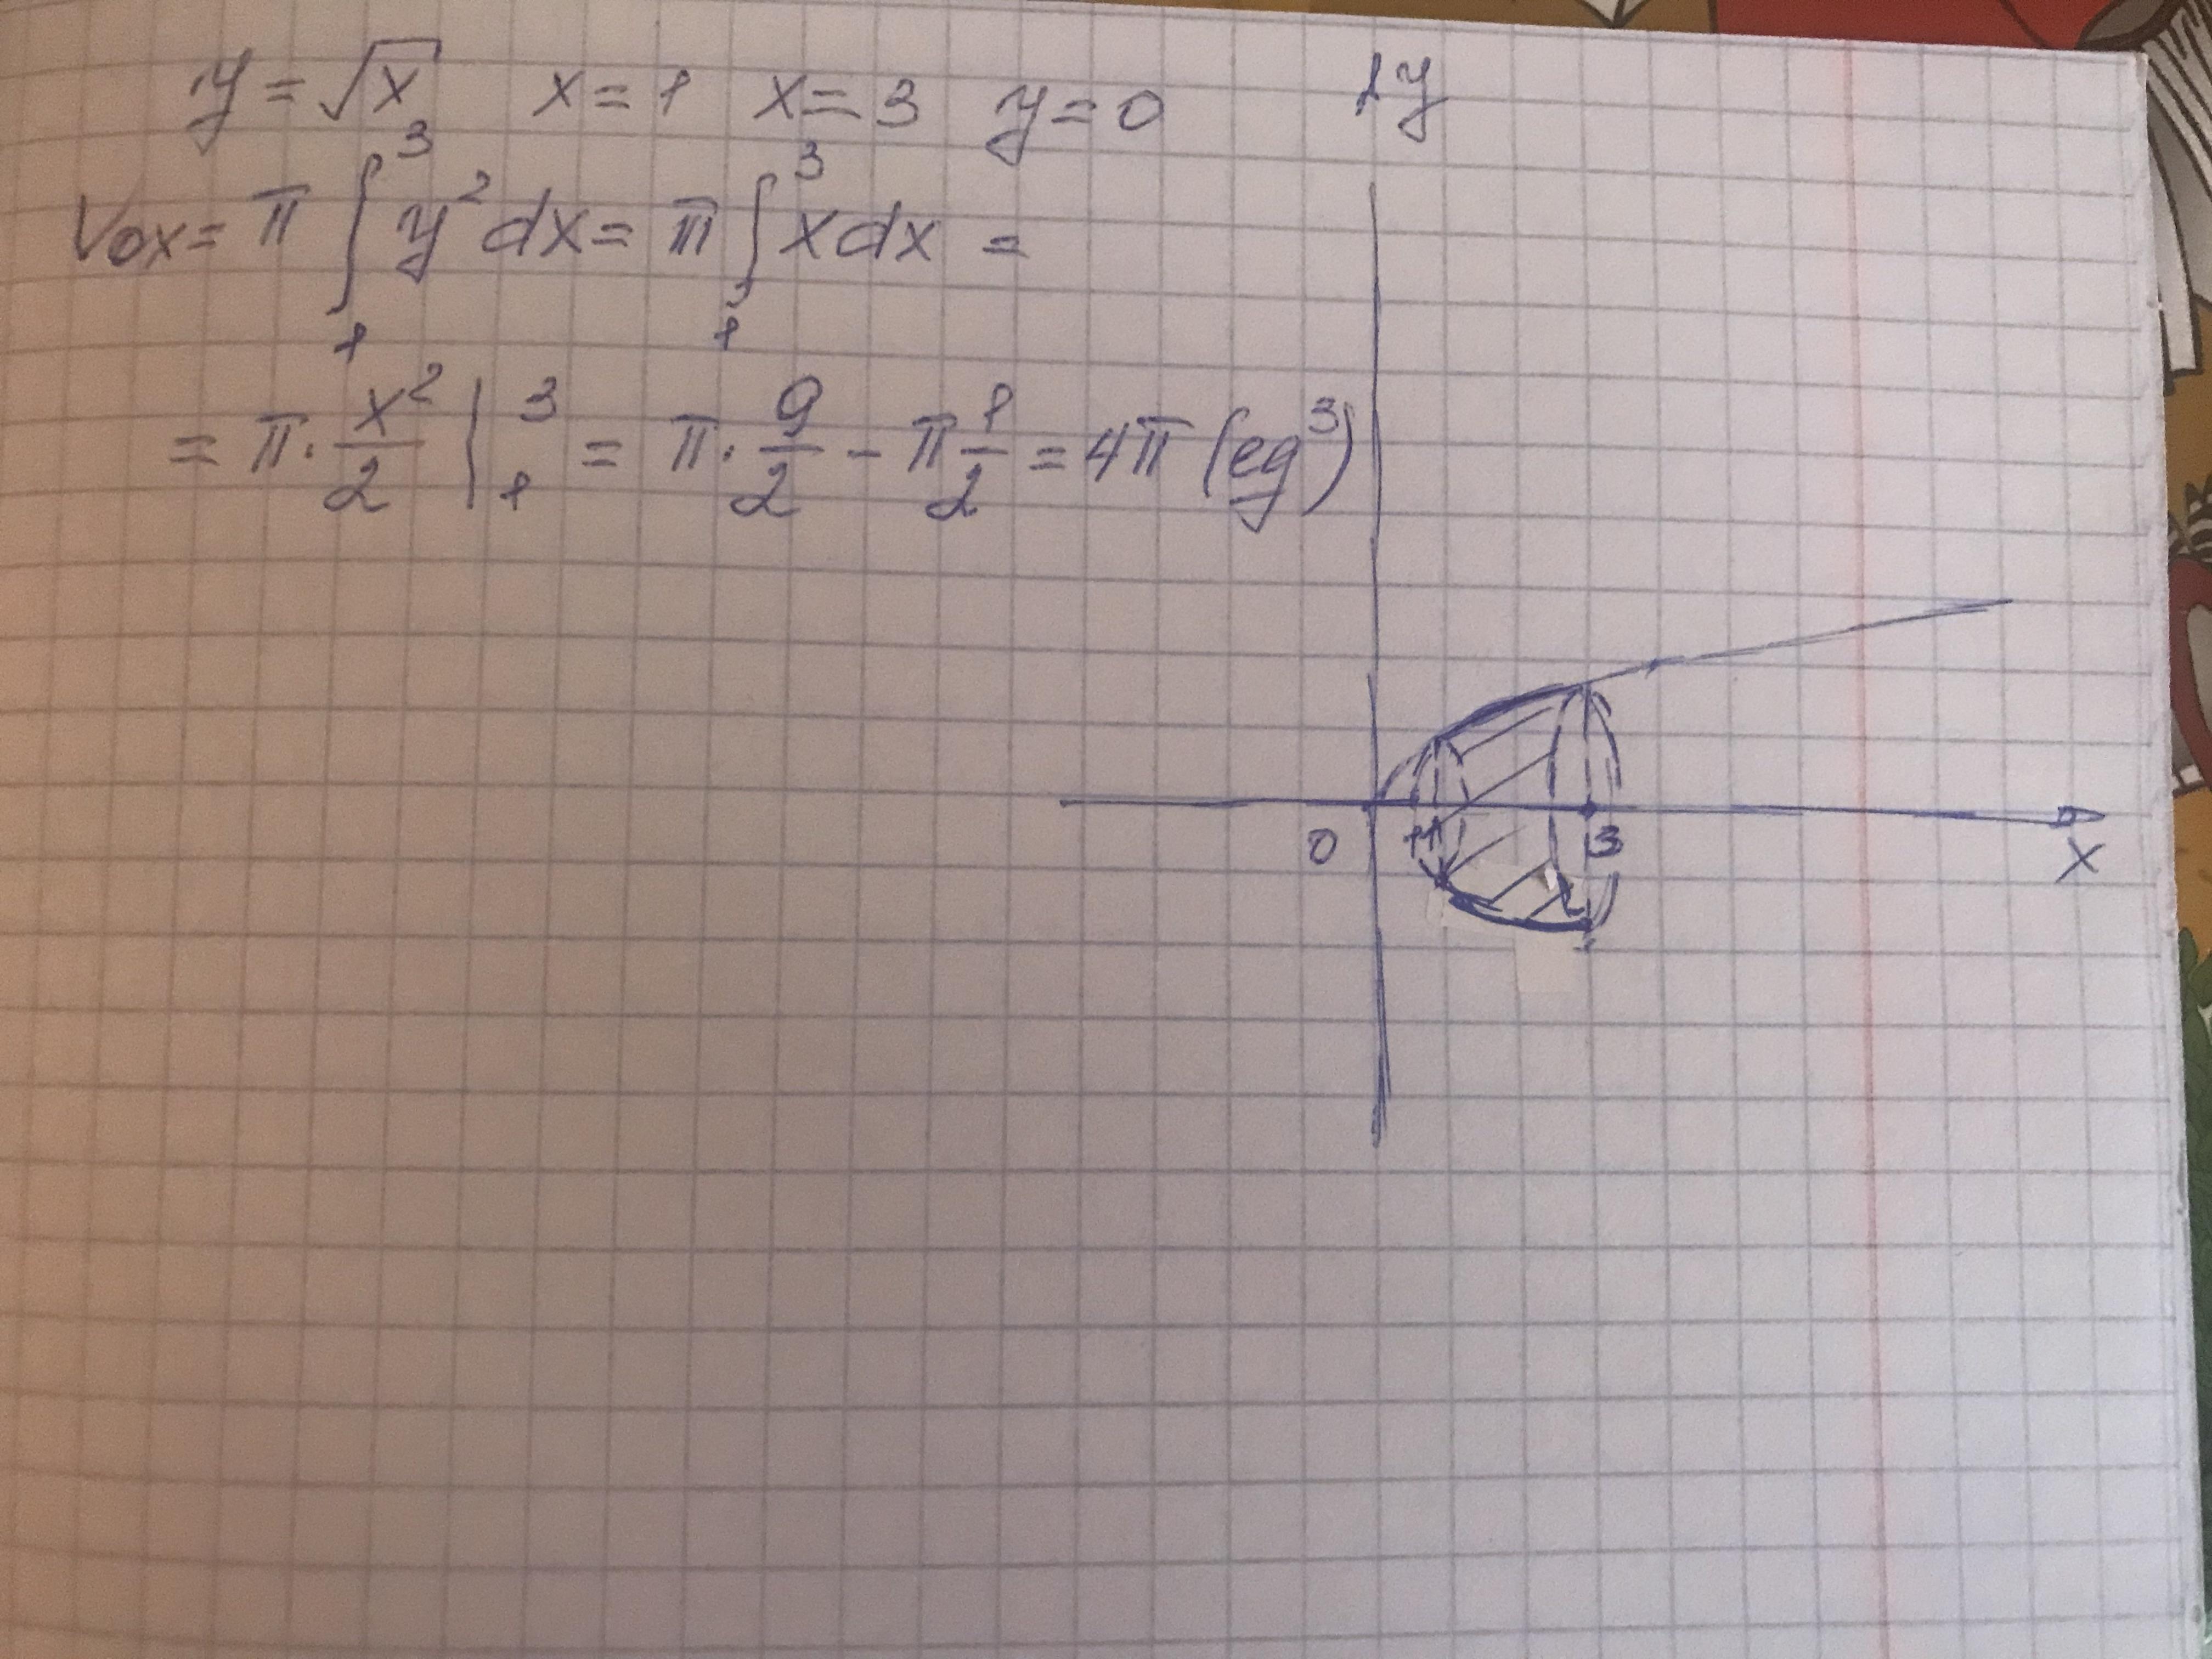 y = √x   x = 1   x = 3   y = 0
Vox = π ∫₁³ y² dx = π ∫₁³ x dx =
= π · x²/2 |₁³ = π · 9/2 − π 1/2 = 4π (ед³)
y
0 1 3
x